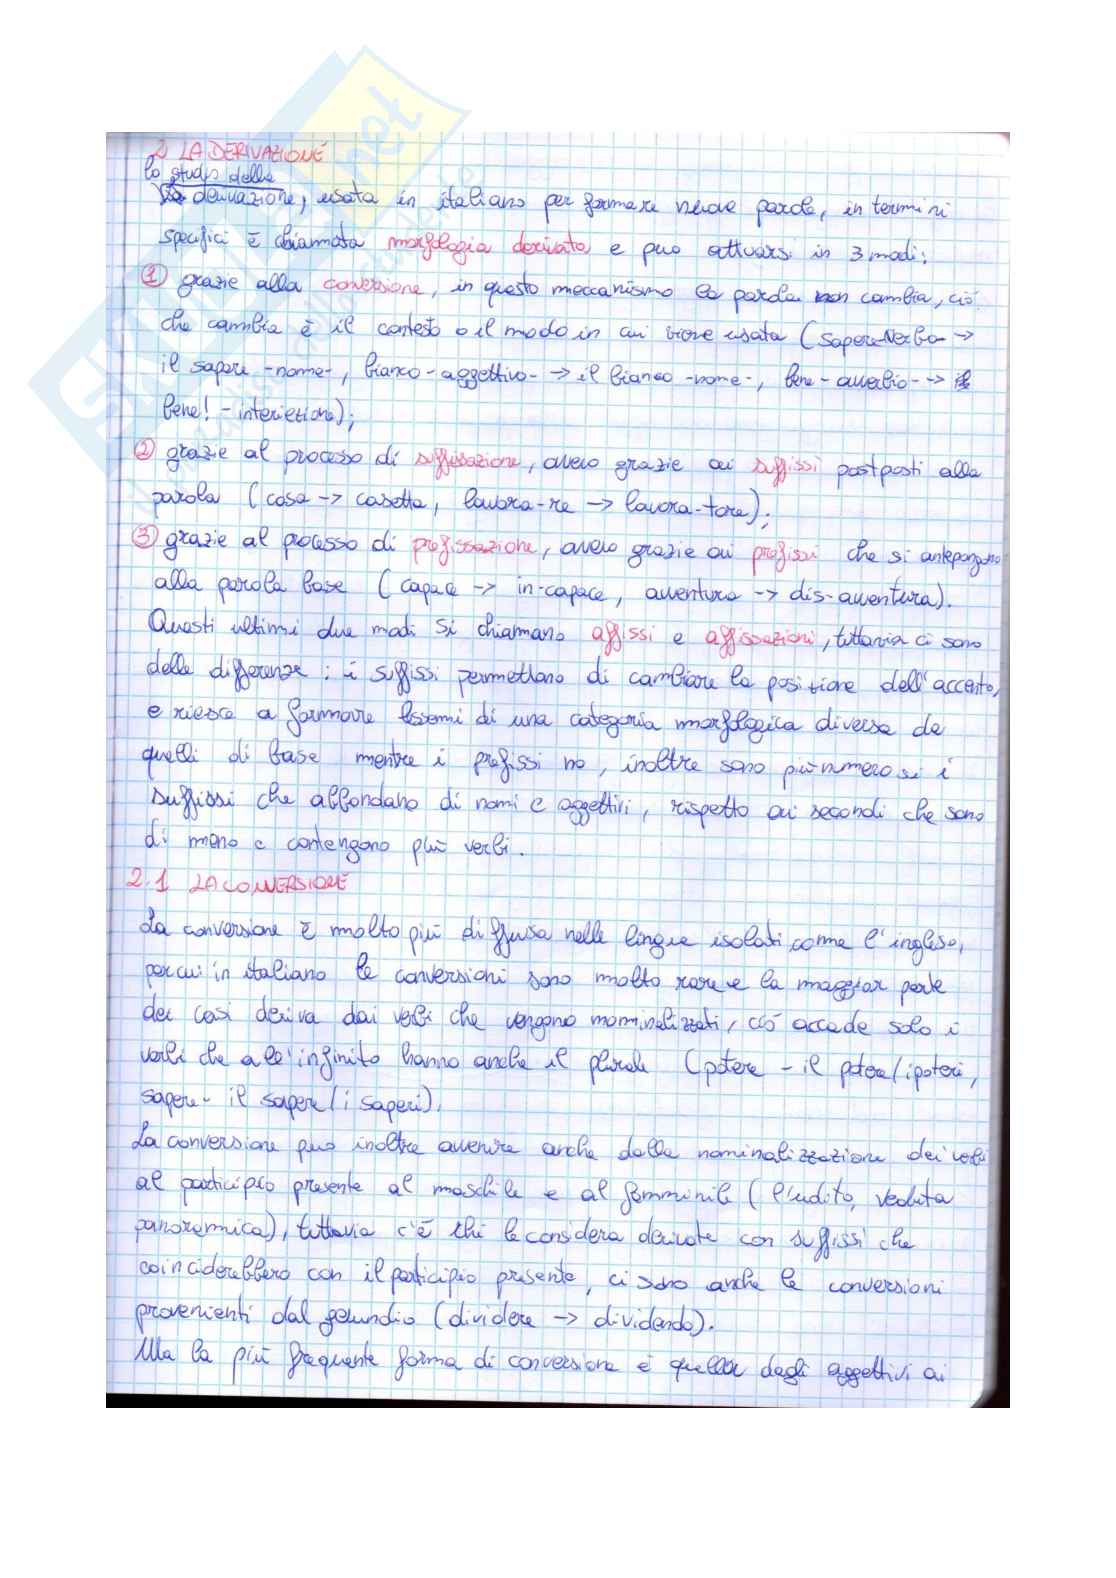 2 LA DERIVAZIONE
lo studio della
derivazione, usata in italiano per formare nuove parole, in termini
specifici è chiamata morfologia derivata e può attuarsi in 3 modi:
1 grazie alla conversione, in questo meccanismo la parola non cambia, ciò
che cambia è il contesto o il modo in cui viene usata (sapere-verbo- →
il sapere -nome-, bianco-aggettivo- → il bianco -nome-, bene-avverbio- →
bene! - interiezione);
2 grazie al processo di suffissazione, ovvero grazie ai suffissi postposti alla
parola (casa → casetta, lavora-re → lavora-tore);
3 grazie al processo di prefissazione, ovvero grazie ai prefissi che si antepongono
alla parola base (capace → in-capace, avventura → dis-avventura).
Questi ultimi due modi si chiamano affissi e affissazioni, tuttavia ci sono
delle differenze: i suffissi permettono di cambiare la posizione dell'accento,
e riesce a formare lessemi di una categoria morfologica diversa da
quelli di base mentre i prefissi no, inoltre sono più numerosi i
suffissi che abbondano di nomi e aggettivi, rispetto ai secondi che sono
di meno e contengono più verbi.
2.1 LA CONVERSIONE
La conversione è molto più diffusa nelle lingue isolati come l'inglese,
per cui in italiano le conversioni sono molto rare e la maggior parte
dei casi deriva dai verbi che vengono nominalizzati, ciò accade solo i
verbi che all'infinito hanno anche il plurale (potere - il potere/i poteri,
sapere- il sapere/i saperi).
La conversione può inoltre avvenire anche dalla nominalizzazione dei verbi
al participio presente al maschile e al femminile (l'udito, veduta
panoramica), tuttavia c'è chi le considera derivate con suffissi che
coinciderebbero con il participio presente, ci sono anche le conversioni
provenienti dal gerundio (dividere → dividendo).
Ma la più frequente forma di conversione è quella dagli aggettivi ai